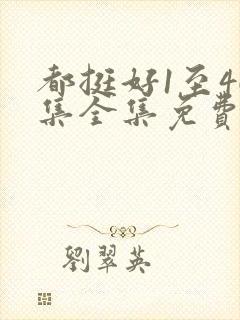 都挺好1至4
集全集免費
劉翠英